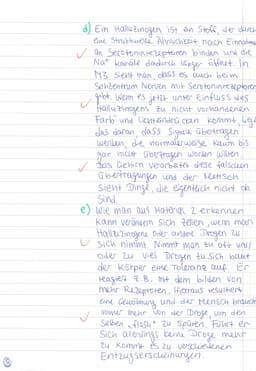 d) Ein Halluzinogen ist ein Stoff, der durch
eine strukturelle Ähnlichkeit nach Einnahme
an Serotoninrezeptoren binden und die
Na⁺ Kanäle dadurch länger öffnet. In
M3 sieht man dass es auch beim
Sehzentrum Nerven mit Serotoninrezeptoren
gibt. Wenn es jetzt unter Einfluss des
Halluzinogens zu nicht vorhandenen
Farb und kommt, liegt
das daran, dass Signale übertragen
werden, die normalerweise kaum bis
gar nicht übertragen worden wären.
Das Gehirn verarbeitet diese falschen
Übertragungen und der Mensch
sieht Dinge, die eigentlich nicht da
sind.
e) Wie man aus Material 2 erkennen
kann verändern sich Zellen, wenn man
Halluzinogene oder andre Drogen zu
sich nimmt. Nimmt man zu oft und/
oder zu viel Drogen zu sich baut
der Körper eine Toleranz auf. Er
reagiert z.B. mit dem bilden von
mehr Rezeptoren. Hieraus resultiert
eine Gewöhnung und der Mensch braucht
immer mehr von der Droge, um den
selben "flash" zu spüren. Führt er
sich allerdings keine Droge mehr
zu kommt es zu verschiedenen
Entzugserscheinungen.